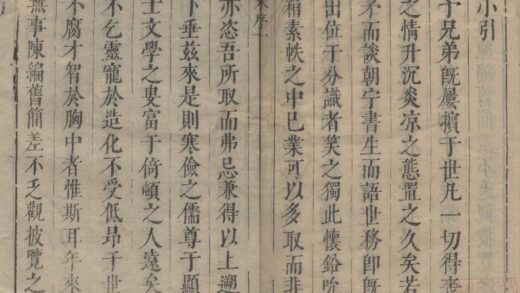 小引
十兄弟旣屢擯于世凡一切得喪
之情升沉炎凉之態置之久矣若
矛而談朝宁書生而語世務卽旣
出位于分識者笑之獨此懷鉛
緗素帙之中已業可以多取而非
亦恣吾所取而弗忌兼得以上遡
下垂茲來是則寒儉之儒尊于顯
士文學之叟富于倚頓之人遠矣
不乞靈寵於造化不受低昂于世
不腐才智於胸中者惟斯耳年來
無事陳編舊簡差不乏觀披覽之